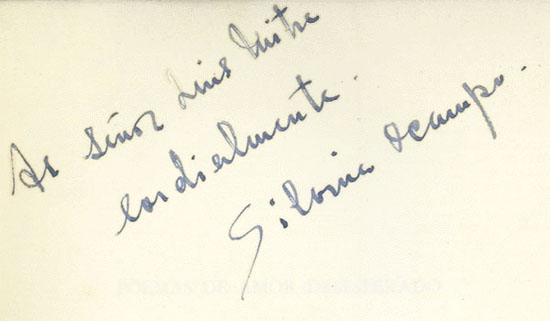 Al Señor Luis Mitre
cordialmente.
Silvina Ocampo.
POEMAS DE AMOR DESESPERADO